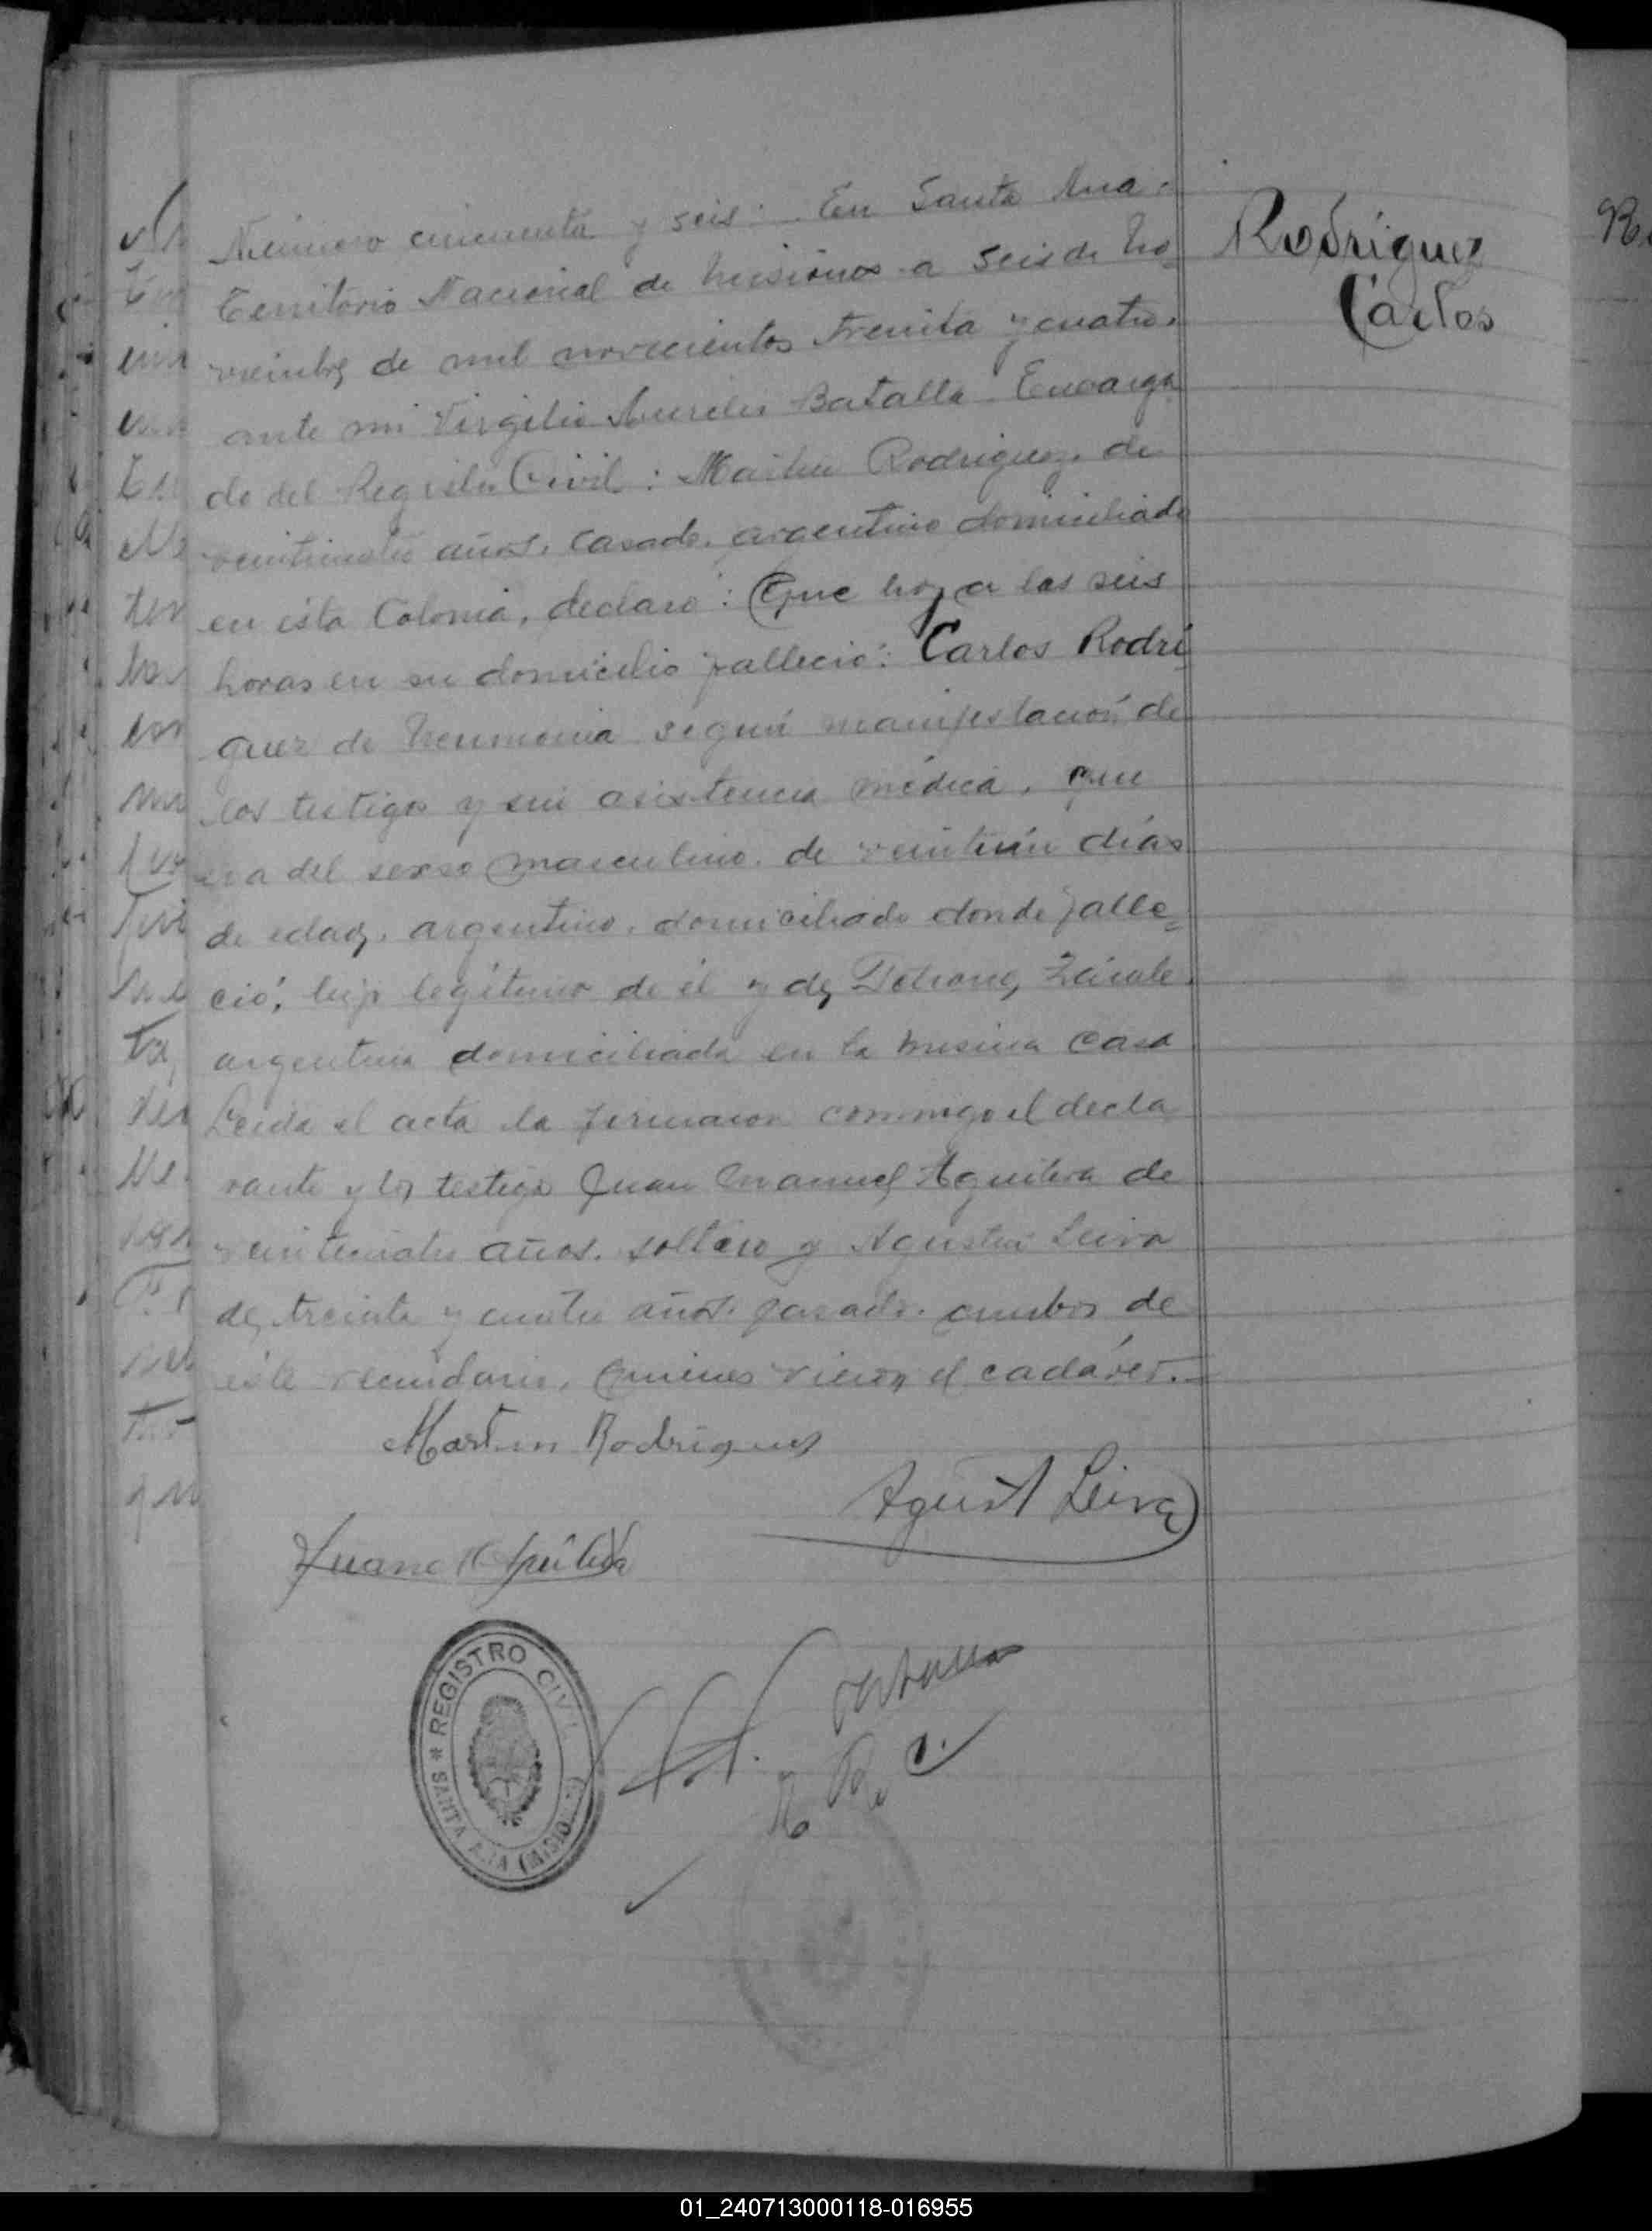 Rodriguez
Carlos
Número cincuenta y seis: En Santa Ana.
Territorio Nacional de Misiones a seis de No
viembre de mil novecientos treinta y cuatro.
ante mi Virgilio Aurelio Batalla Encarga
do del Registro Civil: Martin Rodriguez, de
veinticuatro años, casado, argentino domiciliado
en ésta Colonia, declaró: Que hoy a las seis
horas en su domicilio falleció: Carlos Rodri
guez de Neumonia según manifestación de
los testigos y sin asistencia médica, que
era del sexso masculino, de veintiún días
de edad, argentino, domiciliado donde falle=
ció, hijo legítimo de él y de Zárate
argentina domiciliada en la misma casa
Leida el acta la firmaron conmigo el decla
rante y los testigos Juan Manuel Aguilera de
veinticuatro años, soltero y Agustin Leiva
de treinta y cuatro años, casado, ambos de
éste vecindario, quienes vieron el cadáver.—
Martin Rodriguez
Agust Leiva
REGISTRO CIVIL
* SANTA ANA (MISIONES)
01_240713000118-016955